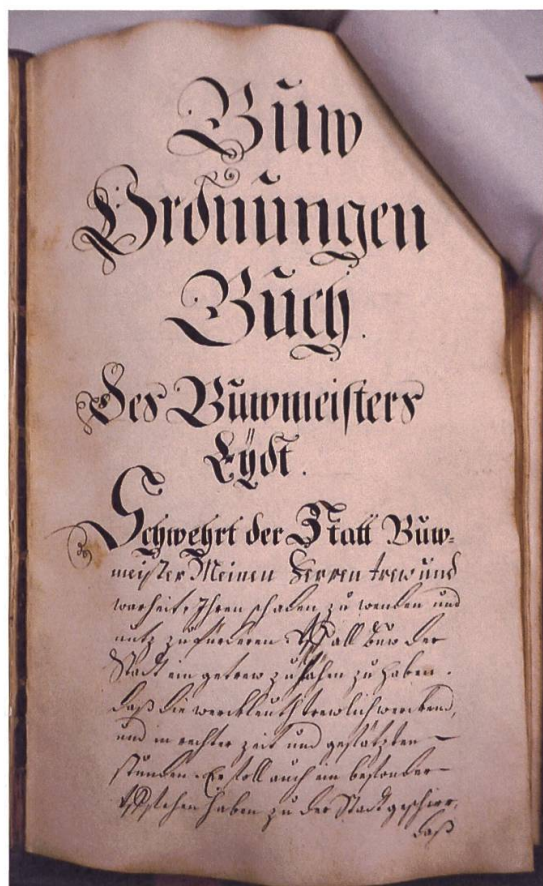 Buw
Ordnungen
Buch.
Des Buwmeisters
Eydt.
Schwehrt der Statt Buw-
meister Meinen Herren trew und
warheit, Ihren schaden zu wenden und
nutz zu fürderen. Uff all büw der
Stadt ein getrew zusähen zu haben.
daß die werckleuth trewlich werckend,
und in rechter zeit und gesätzten
stunden. Er soll auch ein besonder
Uffsehen haben zu der Stadt geschirr,
daß